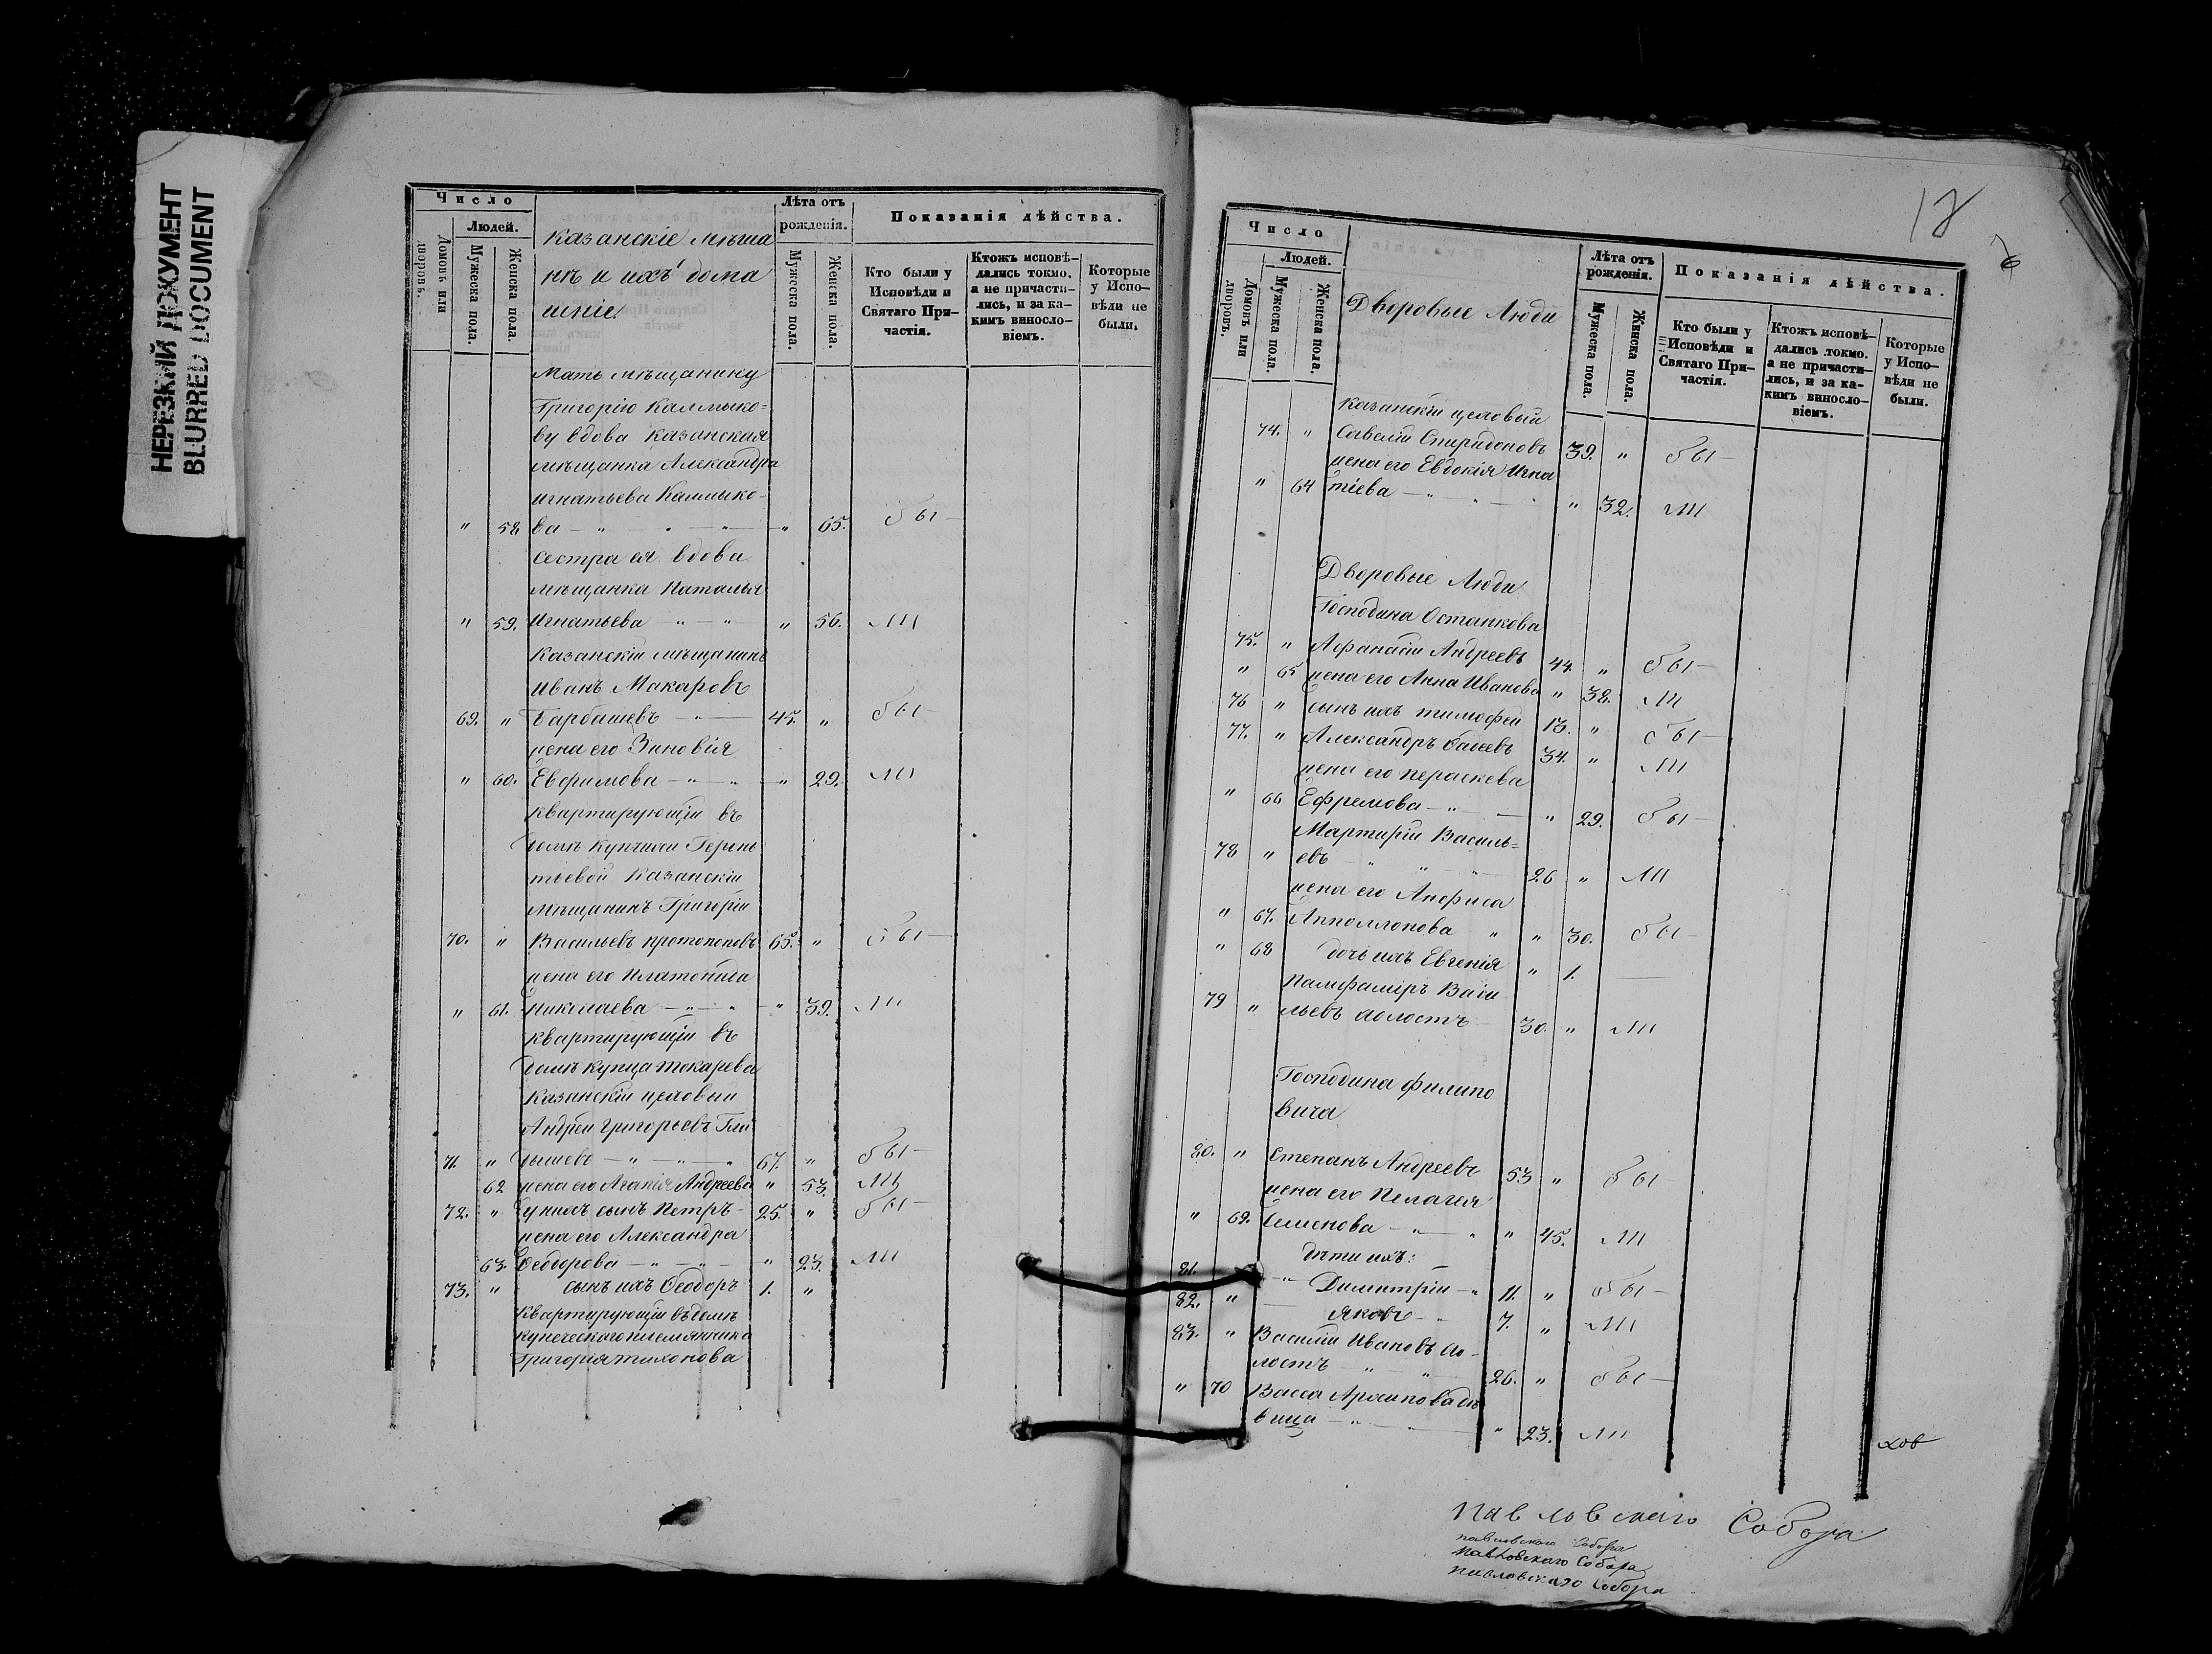 НЕРЕЗКИЙ ДОКУМЕНТ
BLURRED DOCUMENT
Число
Людей.
Домовъ или дворовъ.
Мужеска пола.
Женска пола.
казанскіе мѣща
не и ихъ дома
шніе
Лѣта отъ рожденія.
Мужеска пола.
Женска пола.
Показанія дѣйства.
Кто были у Исповѣди и Святаго Причастія.
Ктожъ исповѣдались токмо, а не причастились, и за какимъ винословіемъ.
Которые у Исповѣди не были.
Мать мѣщанину
Григорію Калмыко=
ву вдова казанская
мѣщанка Александра
Игнатьева Калмыко-
" 58 ва — " — " — " 65. бы —
сестра ея вдова
мѣщанка Наталья
" 59. Игнатьева " — " " 56. ли
Казанскій мѣщанинъ
Иванъ Макаровъ
69. " Барбашевъ — " — 45. " бы —
жена его Зиновія
" 60. Евфимова — " — " " 29. ли
квартирующій въ
домѣ купчихи Терень
тьевой Казанскій
Мѣщанинъ Григорій
70. " Васильевъ протопоповъ 65. " бы —
жена его Платонида
" 61. Николаева — " — " " 39. ли
квартирующій въ
домѣ купца токарева
Казанскій цеховый
Андрей Григорьевъ
71. " — " — " — " 67. " бы —
62 жена его Агапія Андреева " 53. ли
72. " у нихъ сынъ Петръ — 25. " бы —
жена его Александра
63. Ѳеодорова — " — " — " 23. ли
73. " сынъ ихъ Ѳеодоръ 1. "
Квартирующій въ домѣ
купеческаго племянника
Григорія тихонова
18
Число
Людей.
Домовъ или дворовъ.
Мужеска пола.
Женска пола.
Дворовые Люди
Лѣта отъ рожденія.
Мужеска пола.
Женска пола.
Показанія дѣйства.
Кто были у Исповѣди и Святаго Причастія.
Ктожъ исповѣдались токмо, а не причастились, и за какимъ винословіемъ.
Которые у Исповѣди не были.
казанскій цеховый
74. " Савелій Спиридоновъ 39. " бы —
жена его Евдокія Игна
" 64 тіева — " " 32. ли
Дворовые Люди
Господина Останкова
75. " Афанасій Андреевъ 44. " бы —
" 65 жена его Анна Иванова " 38. ли
76 " сынъ ихъ тимофей 13. " бы —
77. " Александръ 34. " ли
жена его пераскева
" 66 Ефремова — " — " 29. бы —
Мартирій Василь=
78 " евъ " " 26 " ли
жена его Анфиса
" 67. Апполлонова " " 30. бы —
" 68 дочь ихъ Евгенія " 1. —
Памфаміръ Васи
79 " льевъ холостъ 30. " ли
Господина филипо
вича
80. " Степанъ Андреевъ 53 " бы —
жена его Пелагея
" 69. Семенова — " " " 45. ли
дѣти ихъ:
81. " Димитрій — " 11. " бы —
82. " Яковъ — 7. " ли
83. " Василій Ивановъ хо-
лостъ — " " 26. " бы —
" 70 Васса Архипова дѣ
вица — " " 23. ли
хов
Павловскаго Собора
павловскаго Собора
Павловскаго Собора
Павловскаго Собора